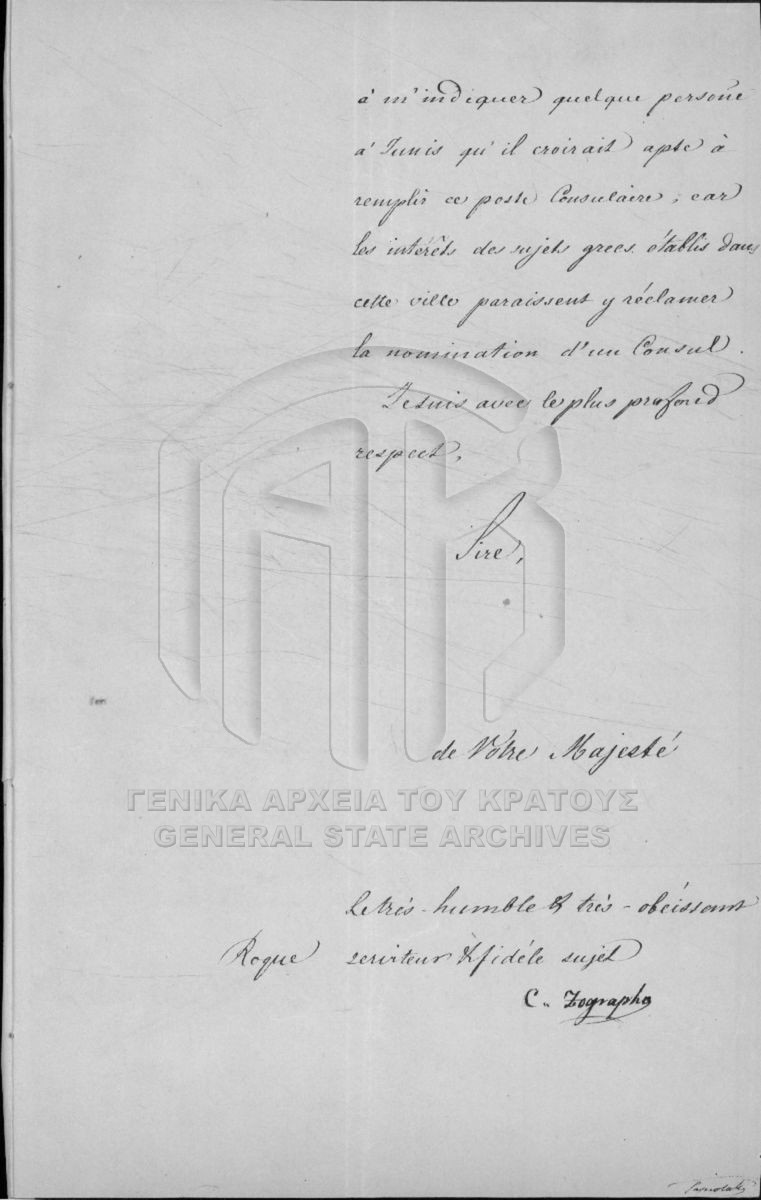 à m'indiquer quelque persoñe
à Tunis qu'il croirait apte à
remplir ce poste Consulaire, car
les intérêts des sujets grecs établis dans
cette ville paraissent y réclamer
la nomination d'un Consul.
Je suis avec le plus profond
respect,
Sire,
de Vôtre Majesté
ΓΕΝΙΚΑ ΑΡΧΕΙΑ ΤΟΥ ΚΡΑΤΟΥΣ
GENERAL STATE ARCHIVES
Le très-humble & très-obéissant
Roque serviteur & fidéle sujet
C. Zographo